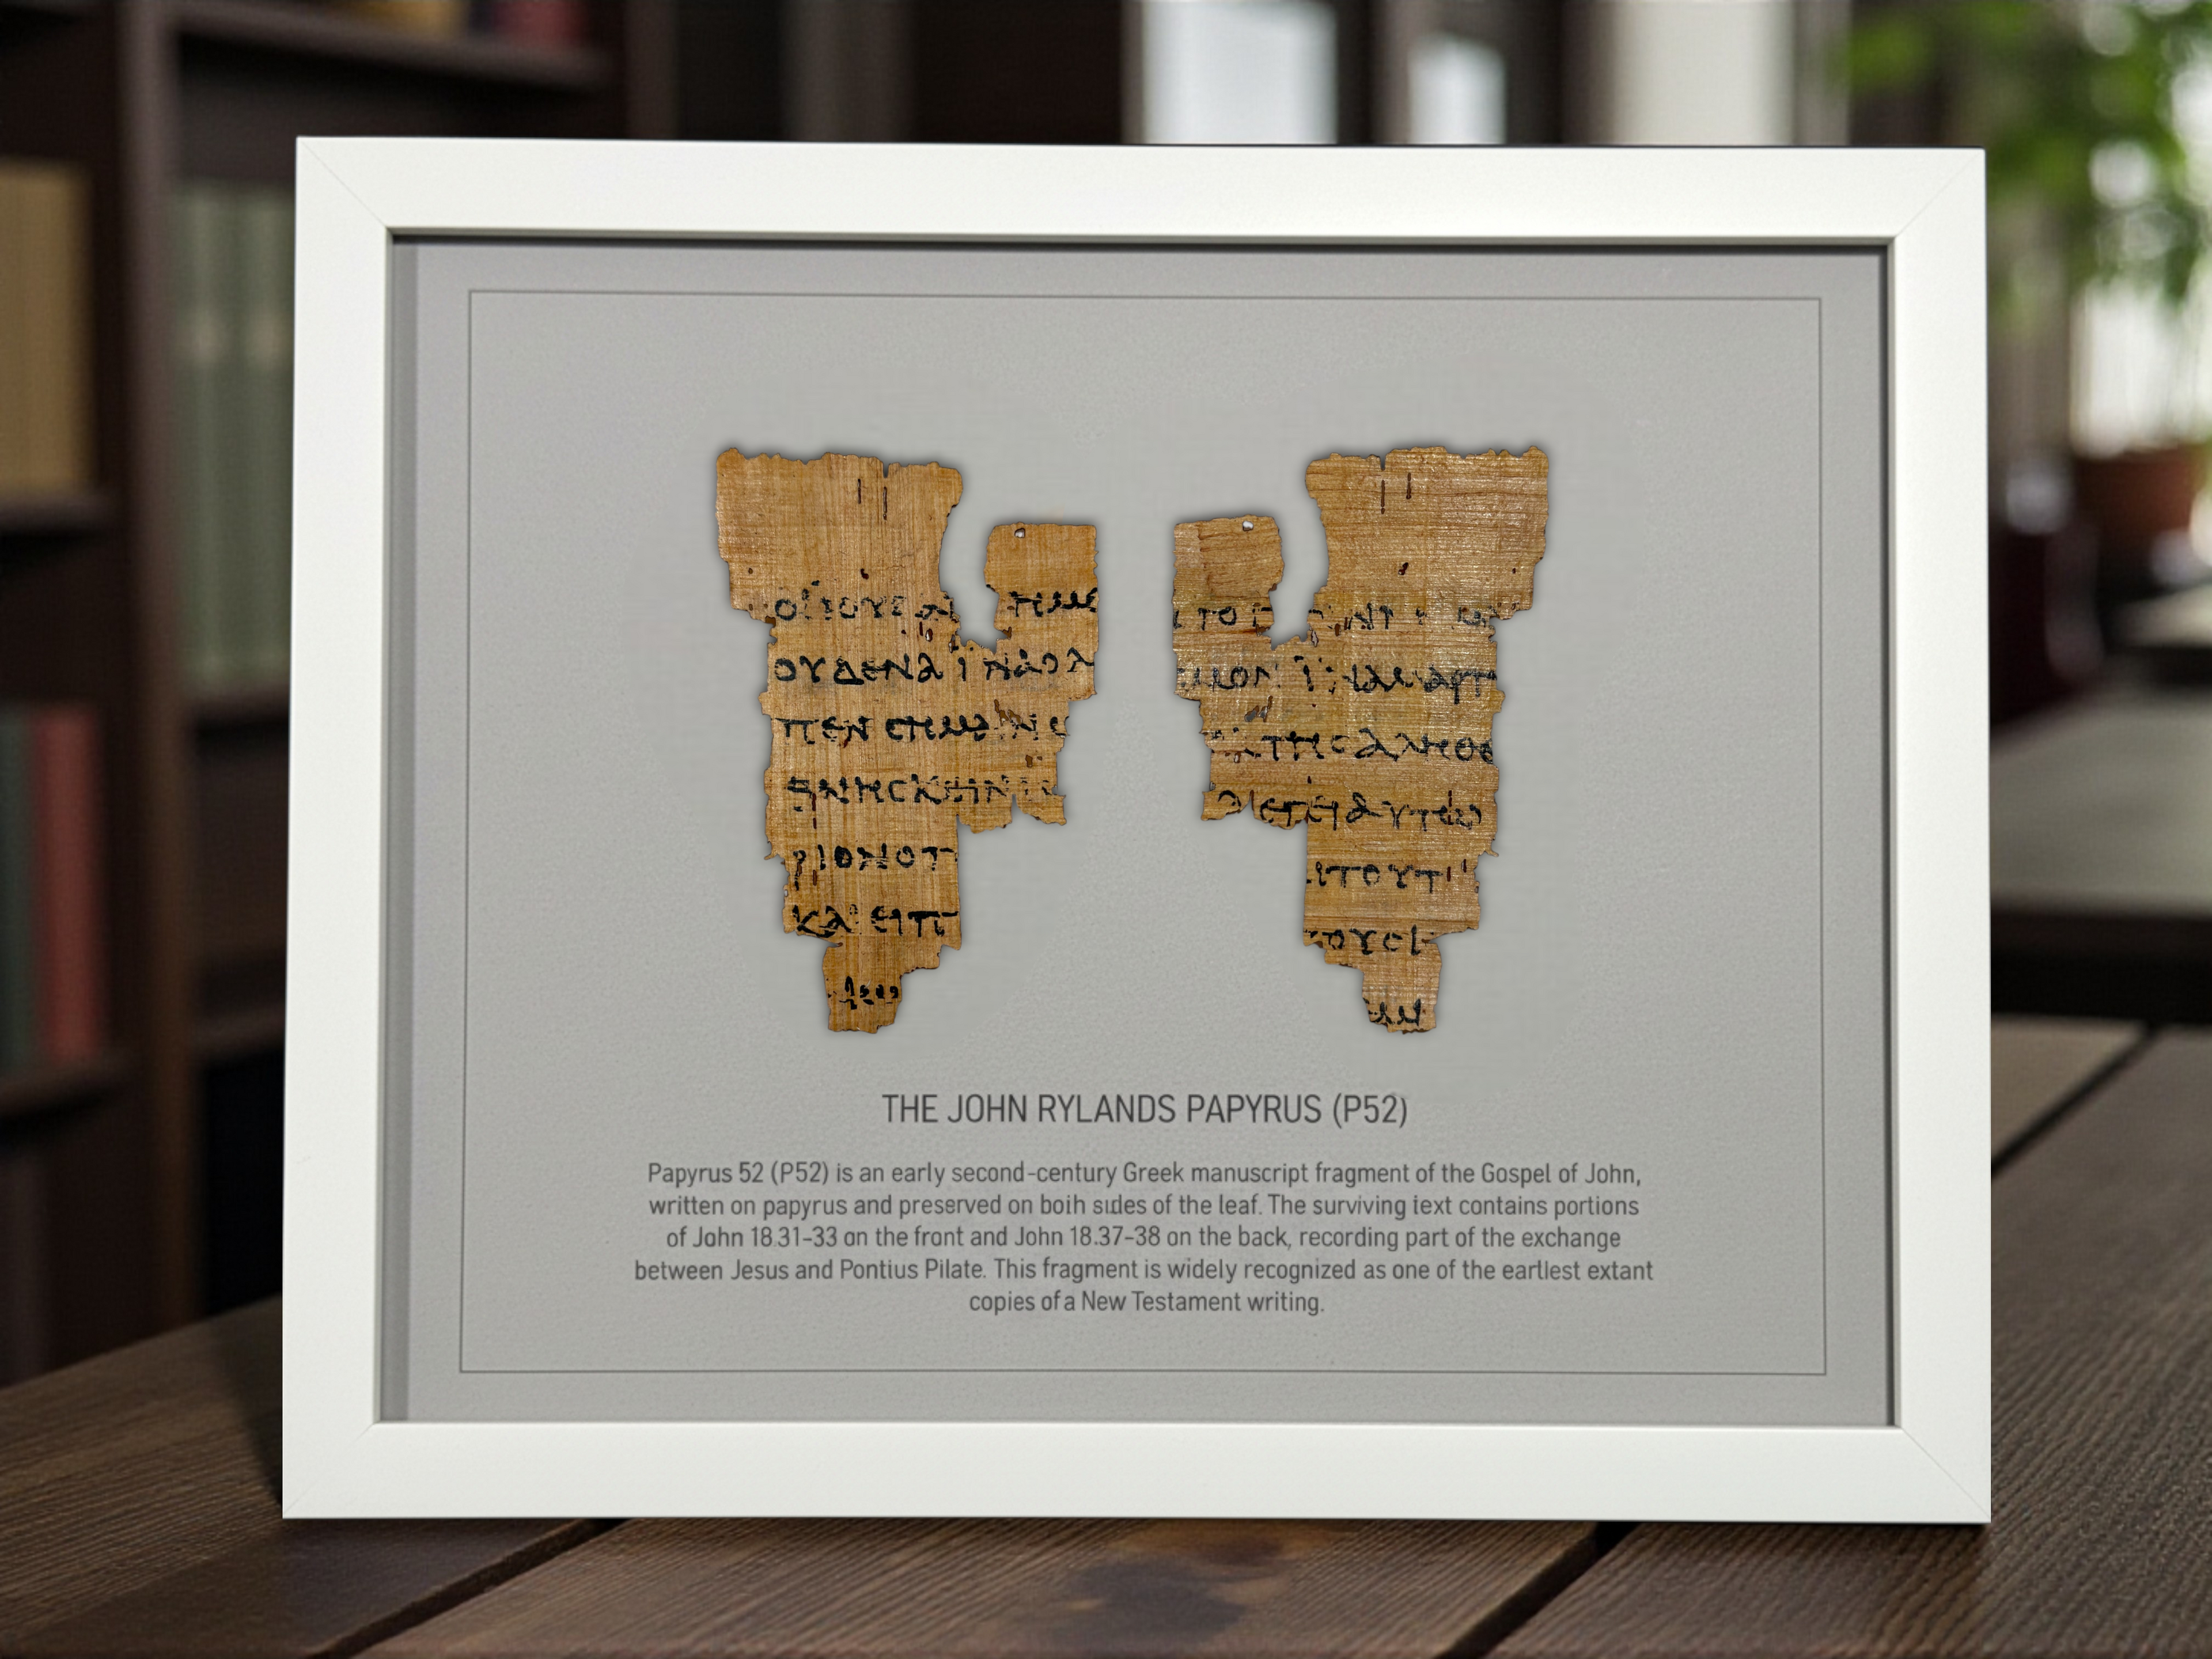 ΟΙ ΙΟΥΔΑΙ ΗΜΕ
ΟΥΔΕΝΑ ΙΝΑ Ο Λ
ΠΕΝ ϹΗΜΑΙΝΩ
ΘΝΗϹΚΕΙΝ ΙϹ
ΡΙΟΝ Ο Π
ΚΑΙ ΕΙΠ
ϹΜΟΝ ΙΝΑ ΜΑΡΤ
ΤΗϹ ΑΛΗΘΕ
ΛΕΓΕΙ ΑΥΤΩ
ΙΤΟΥΤ
ΤΟΥϹΙ
THE JOHN RYLANDS PAPYRUS (P52)
Papyrus 52 (P52) is an early second-century Greek manuscript fragment of the Gospel of John,
written on papyrus and preserved on boih sides of the leaf. The surviving iext contains portions
of John 18.31–33 on the front and John 18.37–38 on the back, recording part of the exchange
between Jesus and Pontius Pilate. This fragment is widely recognized as one of the eartiest extant
copies of a New Testament writing.